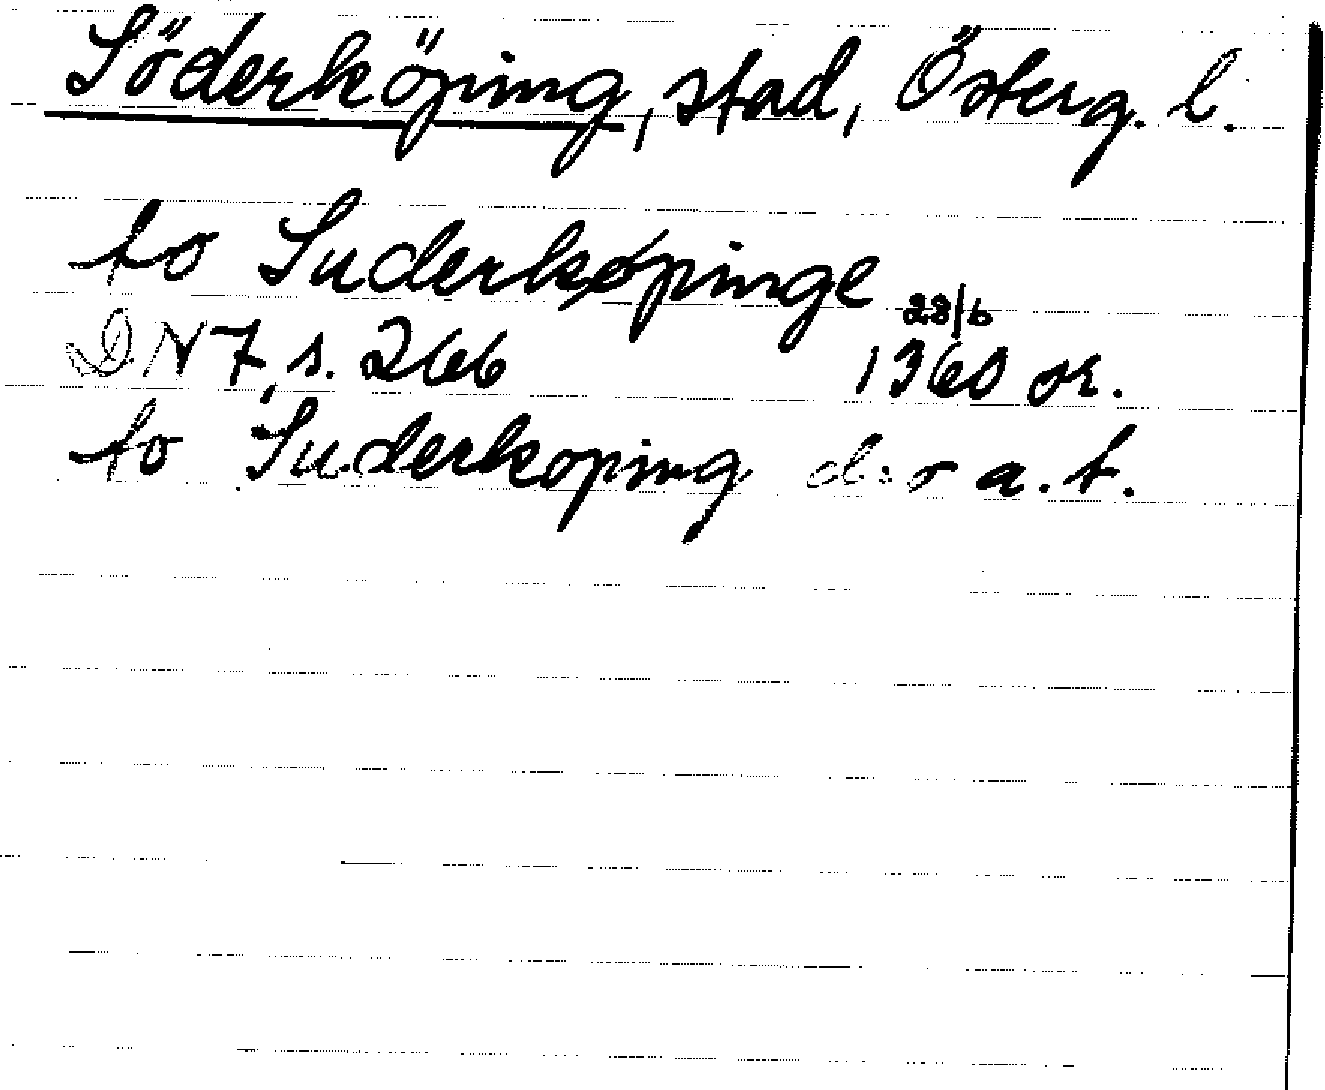 Söderköping, stad, Österg. l.
to Suderkøpinge
28/6
DN 7, s. 266 1360 or.
to Suderkoping d:o a. t.